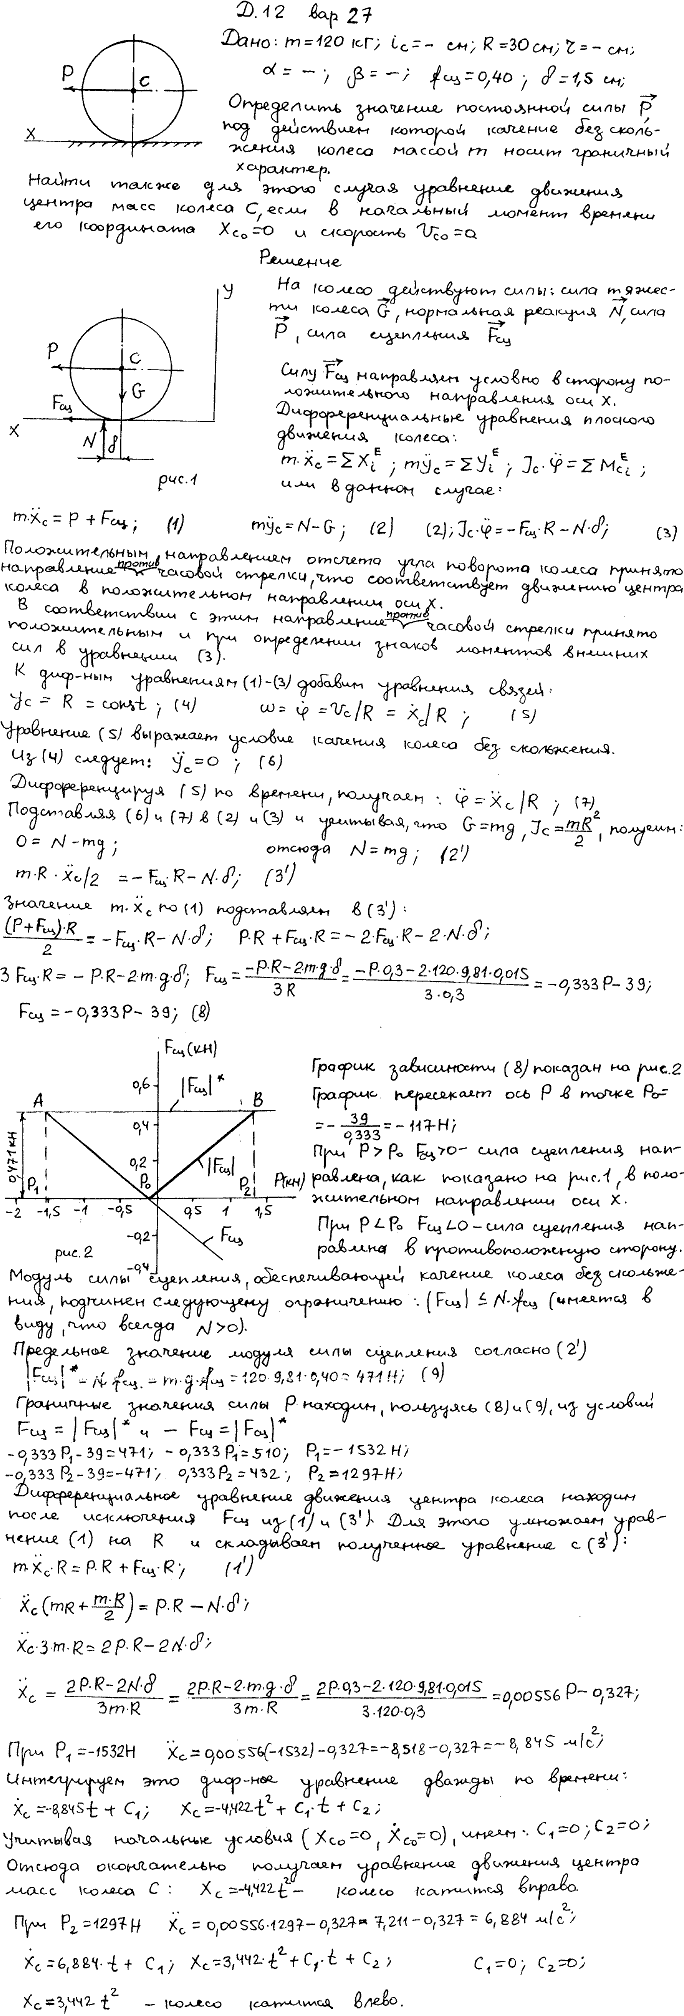 Д.12 вар 27
Дано: m=120 кг; ic=– см; R=30 см; r=– см;
α = – ; β = – ; fсц=0,40 ; δ=1,5 см;
Определить значение постоянной силы P,
под действием которой качение без сколь-
жения колеса массой m носит граничный
характер.
Найти также для этого случая уравнение движения
центра масс колеса C, если в начальный момент времени
его координата Xco=0 и скорость Vco=0
P
C
X
Решение
На колесо действуют силы: сила тяжес-
ти колеса G, нормальная реакция N, сила
P, сила сцепления Fсц
Силу Fсц направляем условно в сторону по-
ложительного направления оси X.
Дифференциальные уравнения плоского
движения колеса:
m·ẍc = ΣXiᴱ ; mÿc = ΣYiᴱ ; Jc·φ̈ = ΣMciᴱ ;
или в данном случае:
У
P
C
G
Fсц
X
N
δ
рис.1
m·ẍc = P + Fсц; (1) mÿc = N – G ; (2) (2); Jc·φ̈ = –Fсц·R – N·δ; (3)
Положительным направлением отсчета угла поворота колеса принято
направление против часовой стрелки, что соответствует движению центра
колеса в положительном направлении оси X.
В соответствии с этим направление против часовой стрелки принято
положительным и при определении знаков моментов внешних
сил в уравнении (3).
К диф-ным уравнениям (1)-(3) добавим уравнения связей:
yc = R = const ; (4) ω = φ̇ = Vc/R = ẋc/R ; (5)
Уравнение (5) выражает условие качения колеса без скольжения.
Из (4) следует: ÿc = 0 ; (6)
Дифференцируя (5) по времени, получаем: φ̈ = ẍc/R ; (7)
Подставляя (6) и (7) в (2) и (3) и учитывая, что G=mg, Jc=mR²/2, получим:
0 = N – mg ; отсюда N = mg ; (2')
m·R·ẍc/2 = –Fсц·R – N·δ; (3')
Значение m·ẍc по (1) подставляем в (3'):
(P+Fсц)·R/2 = –Fсц·R – N·δ; P·R + Fсц·R = –2·Fсц·R – 2·N·δ;
3Fсц·R = –P·R – 2m·g·δ; Fсц = (–P·R–2m·g·δ)/3R = (–P·0,3–2·120·9,81·0,015)/3·0,3 = –0,333P–39;
Fсц = –0,333P – 39; (8)
Fсц(кН)
0,6
A
|Fсц|*
B
0,4
0,471кН
0,2
|Fсц|
P1
P0
P2
P(кН)
-2 -1,5 -1 -0,5 0,5 1 1,5
-0,2
Fсц
рис.2
-0,4
График зависимости (8) показан на рис.2
График пересекает ось P в точке P0=
= –39/0,333 = –117Н;
При P>P0 Fсц>0 – сила сцепления нап-
равлена, как показано на рис.1, в поло-
жительном направлении оси X.
При P<P0 Fсц<0 – сила сцепления нап-
равлена в противоположную сторону.
Модуль силы сцепления, обеспечивающей качение колеса без скольже-
ния, подчинен следующему ограничению: |Fсц| ≤ N·fсц (имеется в
виду, что всегда N>0).
Предельное значение модуля силы сцепления согласно (2')
|Fсц|* = N·fсц = m·g·fсц = 120·9,81·0,40 = 471Н; (9)
Граничные значения силы P находим, пользуясь (8) и (9), из условий
Fсц = |Fсц|* и –Fсц = |Fсц|*
–0,333P1–39=471; –0,333P1=510; P1=–1532Н;
–0,333P2–39=–471; 0,333P2=432; P2=1297Н;
Дифференциальное уравнение движения центра колеса находим
после исключения Fсц из (1) и (3'). Для этого умножаем урав-
нение (1) на R и складываем полученное уравнение с (3'):
m·ẍc·R = P·R + Fсц·R; (1')
ẍc(mR + m·R/2) = P·R – N·δ;
ẍc·3m·R = 2P·R – 2N·δ;
ẍc = (2P·R–2N·δ)/3m·R = (2P·R–2·m·g·δ)/3m·R = (2P·0,3–2·120·9,81·0,015)/3·120·0,3 = 0,00556P–0,327;
При P1=–1532Н ẍc=0,00556(–1532)–0,327=–8,518–0,327=–8,845 м/с²;
Интегрируем это диф-ное уравнение дважды по времени:
ẋc=–8,845t + C1; xc=–4,422t² + C1·t + C2;
Учитывая начальные условия (Xco=0, Ẋco=0), имеем: C1=0; C2=0;
Отсюда окончательно получаем уравнение движения центра
масс колеса C: Xc=–4,422t² – колесо катится вправо.
При P2=1297Н ẍc = 0,00556·1297–0,327= 7,211–0,327 = 6,884 м/с²;
ẋc=6,884·t + C1; xc=3,442·t² + C1·t + C2; C1=0; C2=0;
xc=3,442t² – колесо катится влево.